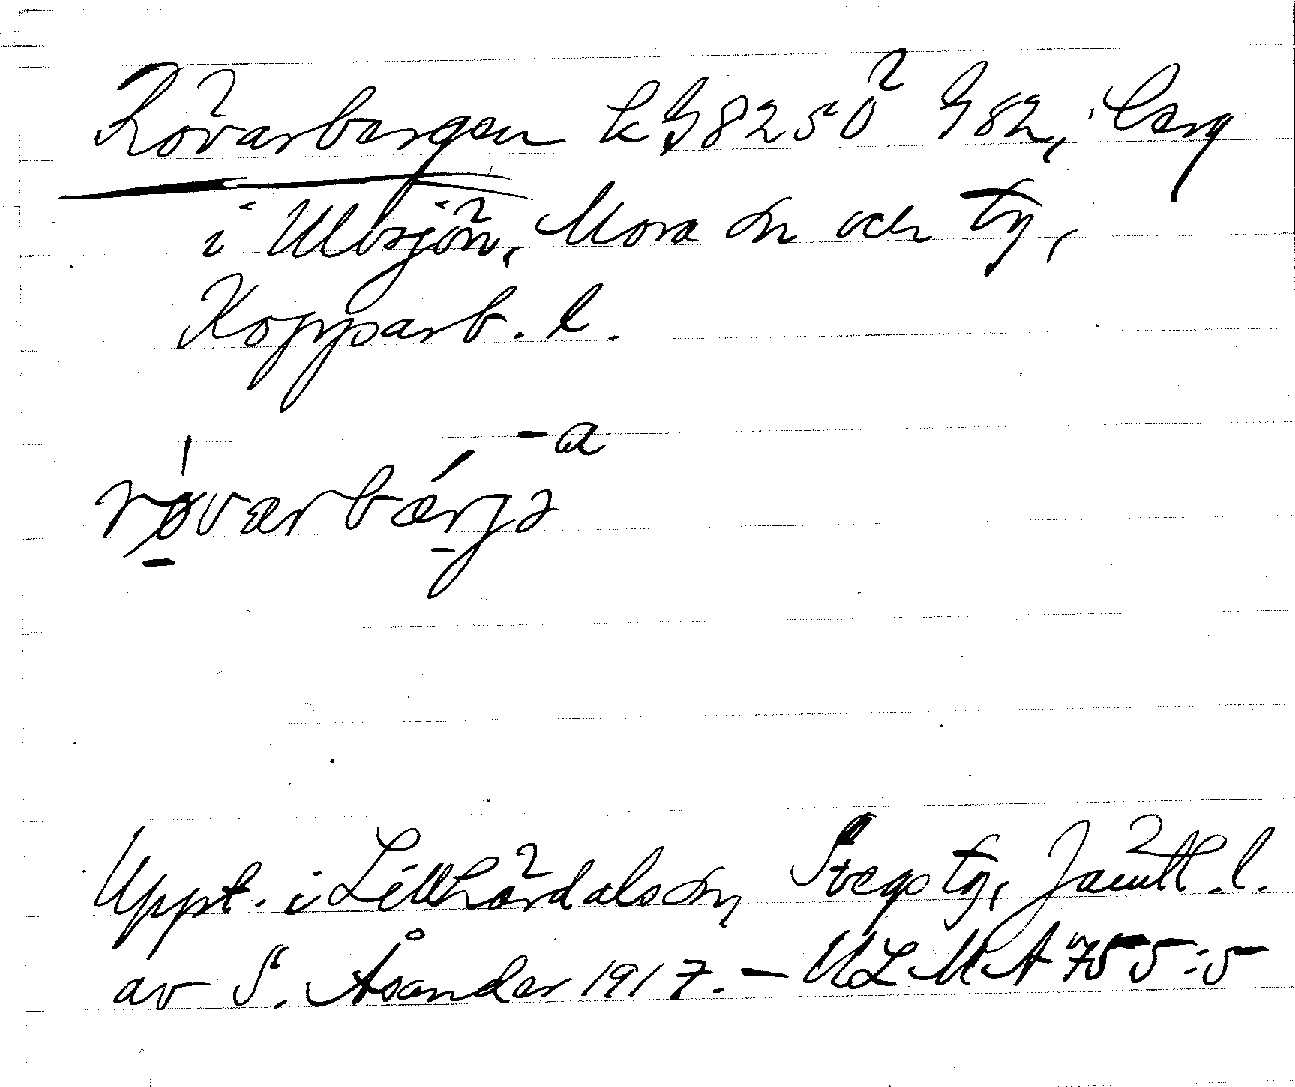 Rövarbergen L G 8250 G 82, berg
i Ulvsjön, Mora sn och tg,
Kopparb. l.
-a
røværbærjə
Uppt. i Lillhärdals sn, Svegs tg, Jämtl. l.
av S. Åsander 1917. – ULMA 755:5